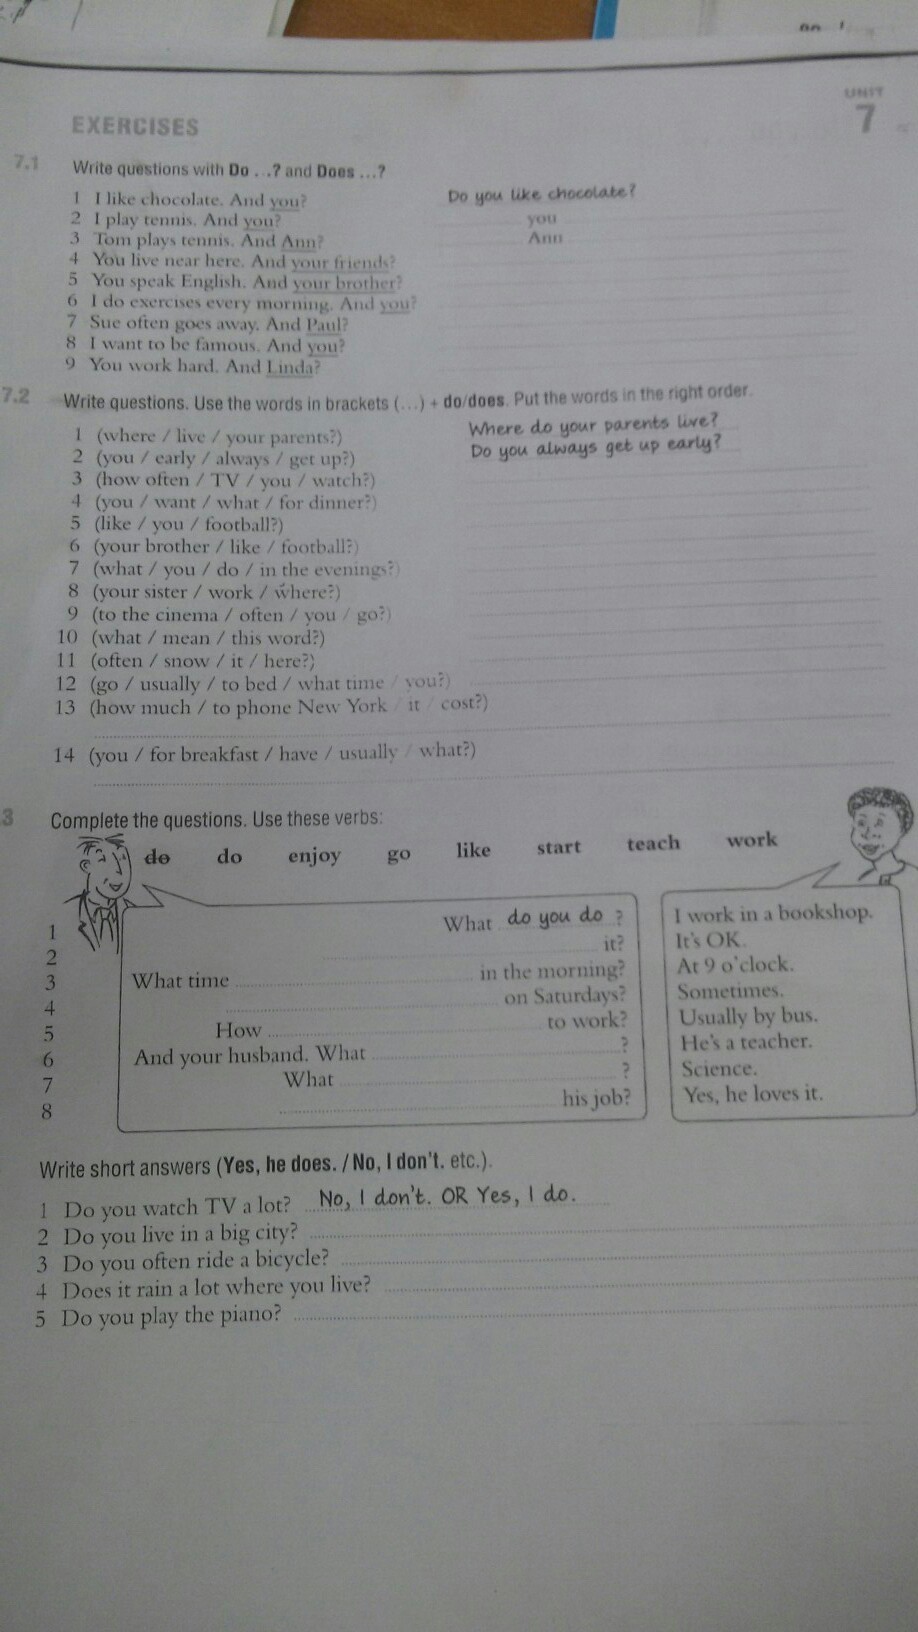 UNIT
7
EXERCISES
7.1 Write questions with Do ...? and Does ...?
1 I like chocolate. And you? Do you like chocolate?
2 I play tennis. And you? you
3 Tom plays tennis. And Ann? Ann
4 You live near here. And your friends?
5 You speak English. And your brother?
6 I do exercises every morning. And you?
7 Sue often goes away. And Paul?
8 I want to be famous. And you?
9 You work hard. And Linda?
7.2 Write questions. Use the words in brackets (...) + do/does. Put the words in the right order.
1 (where / live / your parents?) Where do your parents live?
2 (you / early / always / get up?) Do you always get up early?
3 (how often / TV / you / watch?)
4 (you / want / what / for dinner?)
5 (like / you / football?)
6 (your brother / like / football?)
7 (what / you / do / in the evenings?)
8 (your sister / work / where?)
9 (to the cinema / often / you / go?)
10 (what / mean / this word?)
11 (often / snow / it / here?)
12 (go / usually / to bed / what time / you?)
13 (how much / to phone New York / it / cost?)
14 (you / for breakfast / have / usually / what?)
3 Complete the questions. Use these verbs:
do do enjoy go like start teach work
1 What do you do ? I work in a bookshop.
2 it? It's OK.
3 What time in the morning? At 9 o'clock.
4 on Saturdays? Sometimes.
5 How to work? Usually by bus.
6 And your husband. What ? He's a teacher.
7 What ? Science.
8 his job? Yes, he loves it.
Write short answers (Yes, he does. / No, I don't. etc.).
1 Do you watch TV a lot? No, I don't. OR Yes, I do.
2 Do you live in a big city?
3 Do you often ride a bicycle?
4 Does it rain a lot where you live?
5 Do you play the piano?